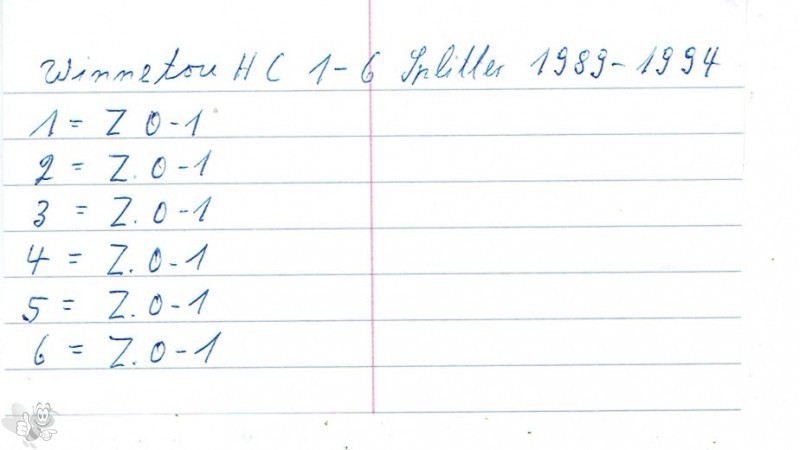 Winnetou HC 1-6 Splitter 1989-1994
1 = Z 0-1
2 = Z. 0-1
3 = Z. 0-1
4 = Z. 0-1
5 = Z. 0-1
6 = Z. 0-1